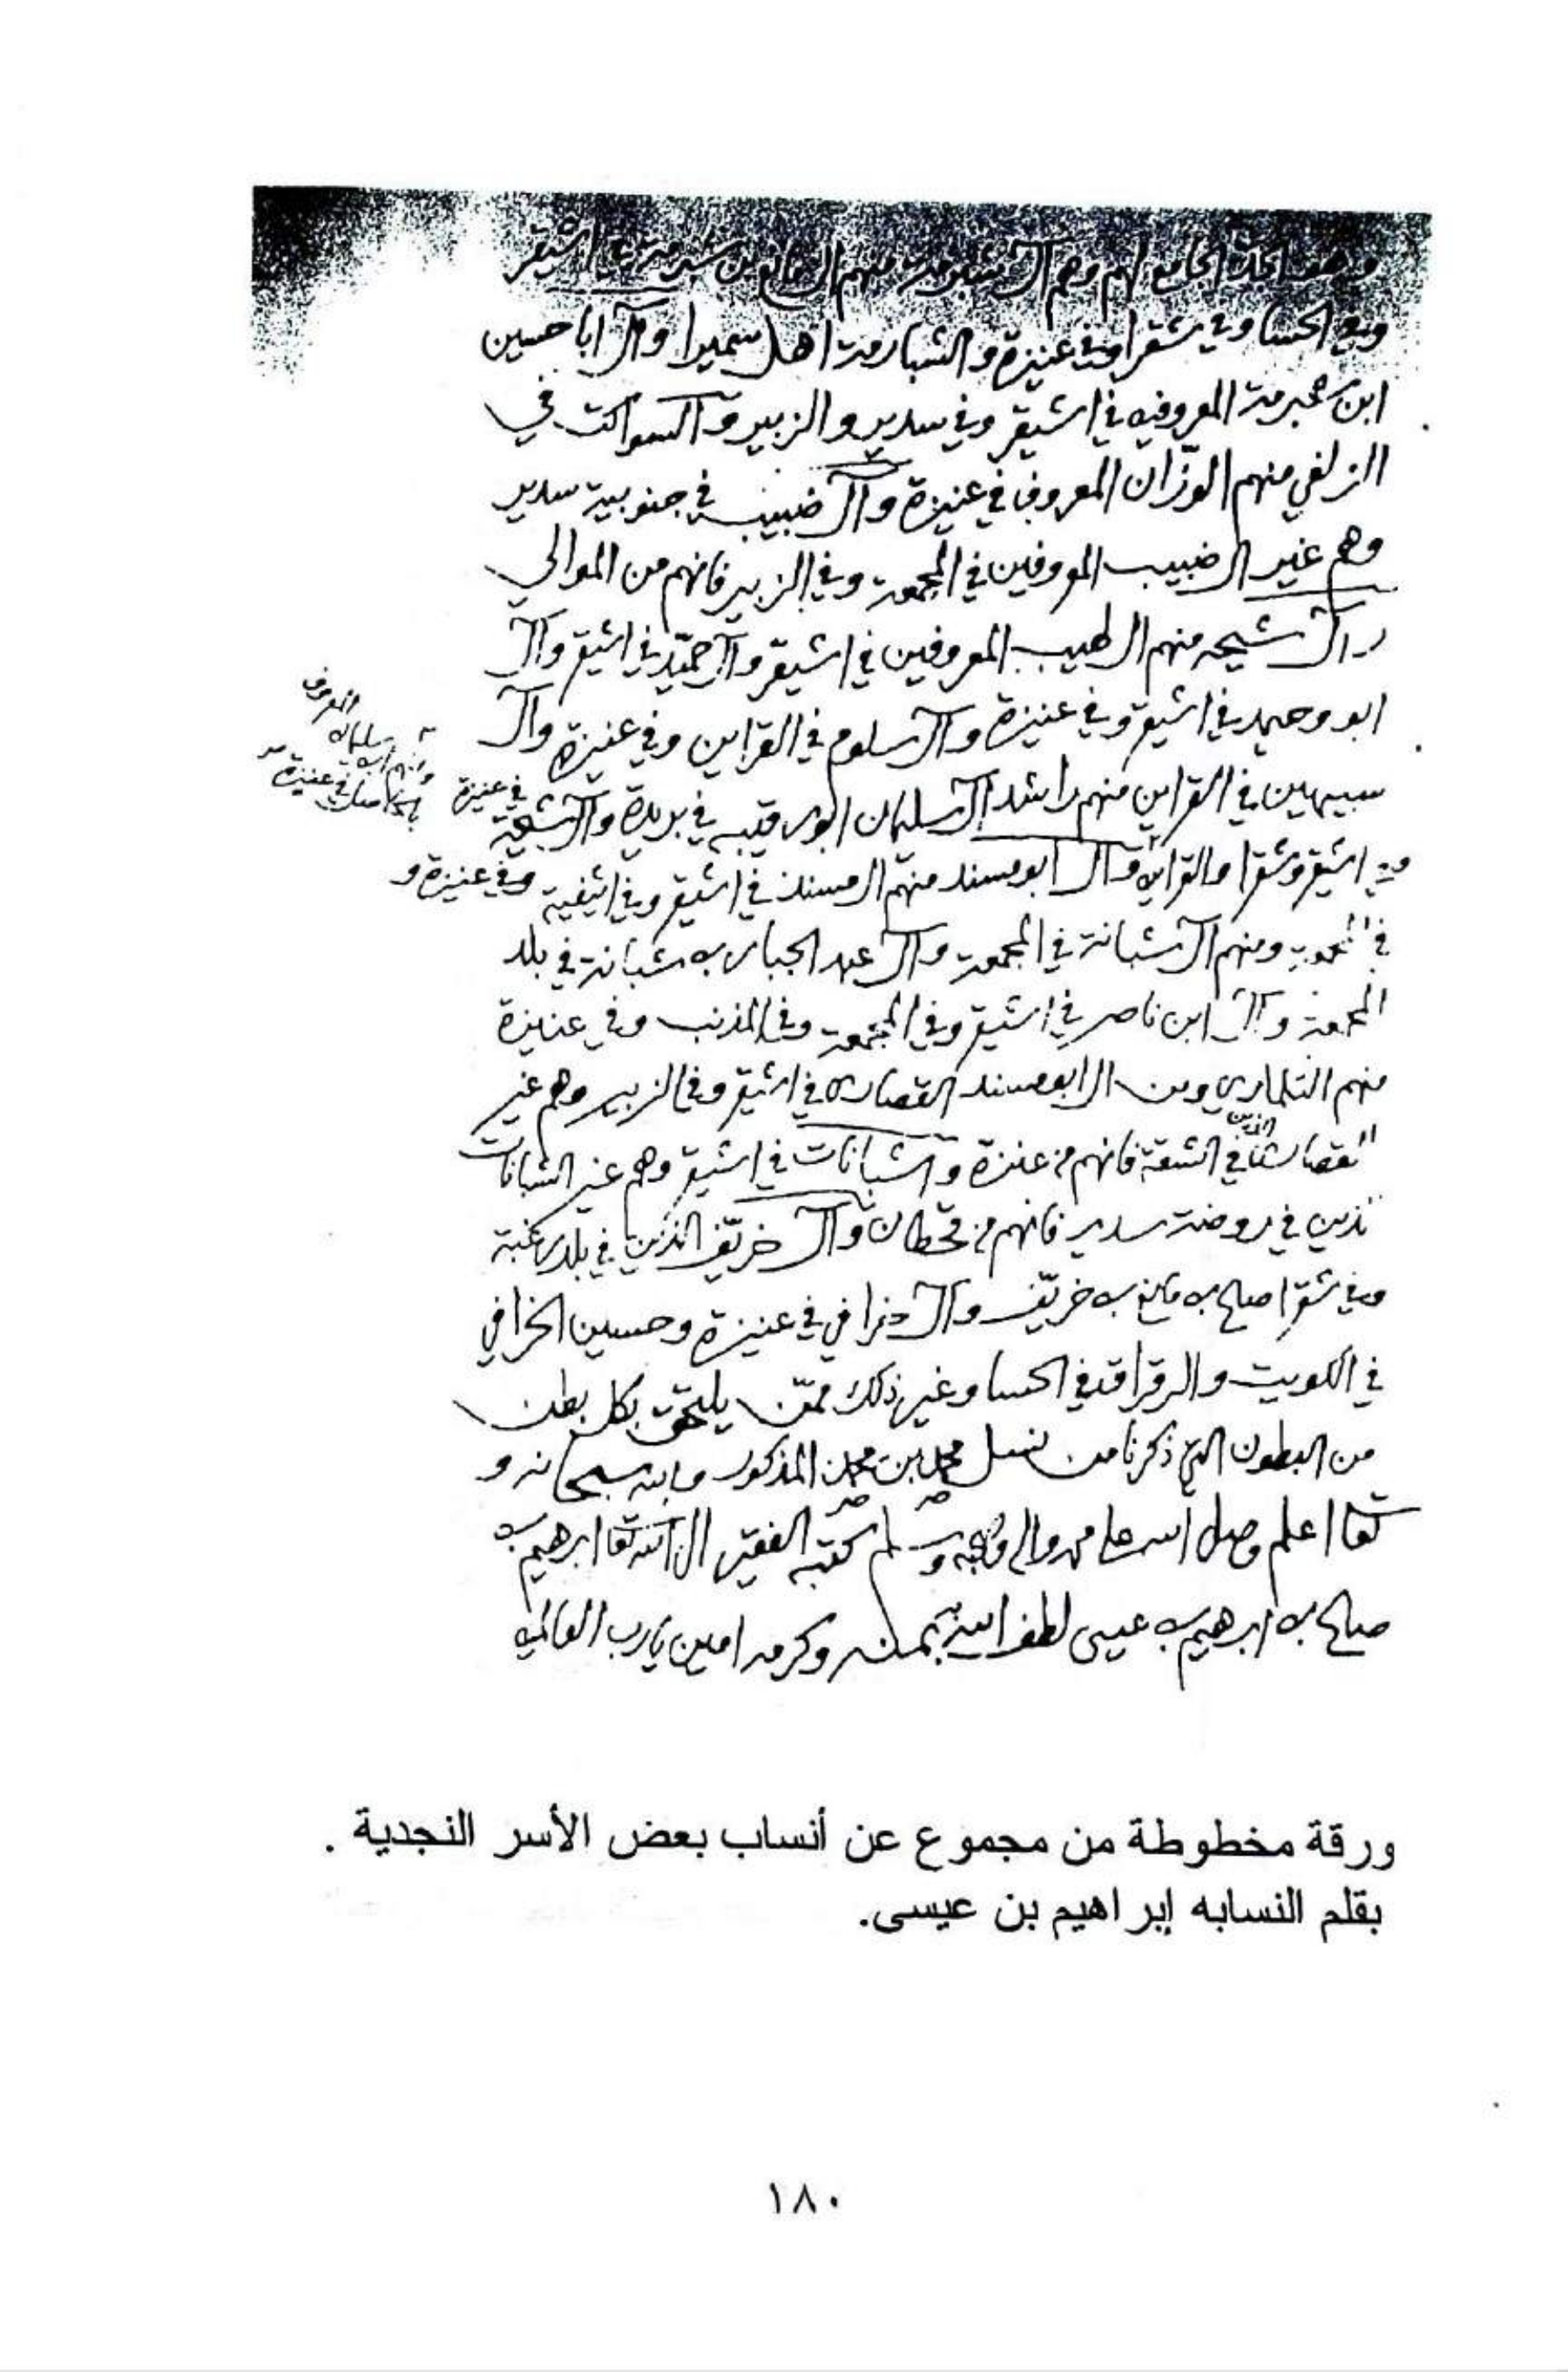 وهو الجد الجامع لهم وهم آل شبرمة منهم ال مانع بن شبرمة في اشيقر
وفي الحسا وفي شقرا وفي عنيزة والشبارمة اهل سميرا وآل ابا حسين
ابن شبرمة المعروفين في اشيقر وفي سدير والزبير والسواكت في
الزلفي منهم الوزّان المعروف في عنيزة وآل ضبيب في جنوبية سدير
وهم غير ال ضبيب المعروفين في المجمعة وفي الزبير فانهم من الموالي
وآل شيحه منهم ال طيب المعروفين في اشيقر وآل حميّد في اشيقر وآل
ابو وحيمد في اشيقر وفي عنيزة وآل سلوم في القراين وفي عنيزة وآل
سبيهين في القراين منهم راشد آل سليمان ابو رقيبه في بريدة وآل شيحة في عنيزة
المعروف
سليمان
في عنيزة
وفي اشيقر وشقرا والقراين وآل ابو مسند منهم ال مسند في اشيقر وفي اثيفية وفي عنيزة و
في ومنهم آل شبانة في المجمعة وآل عبد الجبار بن شبانة في بلد
المجمعة وآل ابن ناصر في اشيقر وفي المجمعة وفي المذنب وفي عنيزة
منهم ومن ال ابو مسند القصارى في اشيقر وفي الزبير وهم غير
القصارى الذين في الشقة فانهم من عنزة والشبانات في اشيقر وهم غير الشبانات
الذين في روضة سدير فانهم من قحطان وآل خريّف الذين في بلد رغبة
وفي شقرا صالح بن مانع بن خريّف وآل خرافي في عنيزة وحسين الخرافي
في الكويت والرقراق في الحسا وغير ذلك ممّن يلتحق بكل بطن
من البطون التي ذكرنا من نسل محمد بن المذكور والله سبحانه و
تعا اعلم وصلى الله على محمد واله وصحبه وسلم كتبه الفقير الى الله تعا ابرهيم بن
صالح بن ابرهيم بن عيسى لطف الله به بمنه وكرمه امين يارب العالمين
ورقة مخطوطة من مجموع عن أنساب بعض الأسر النجدية .
بقلم النسابه إبراهيم بن عيسى.
١٨٠